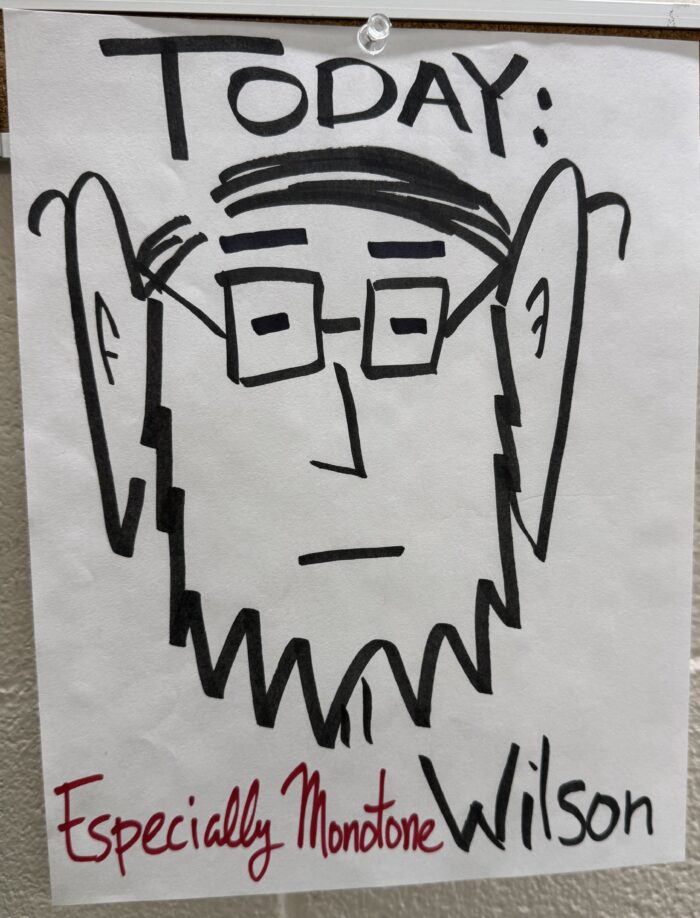 TODAY:
Especially Monotone Wilson